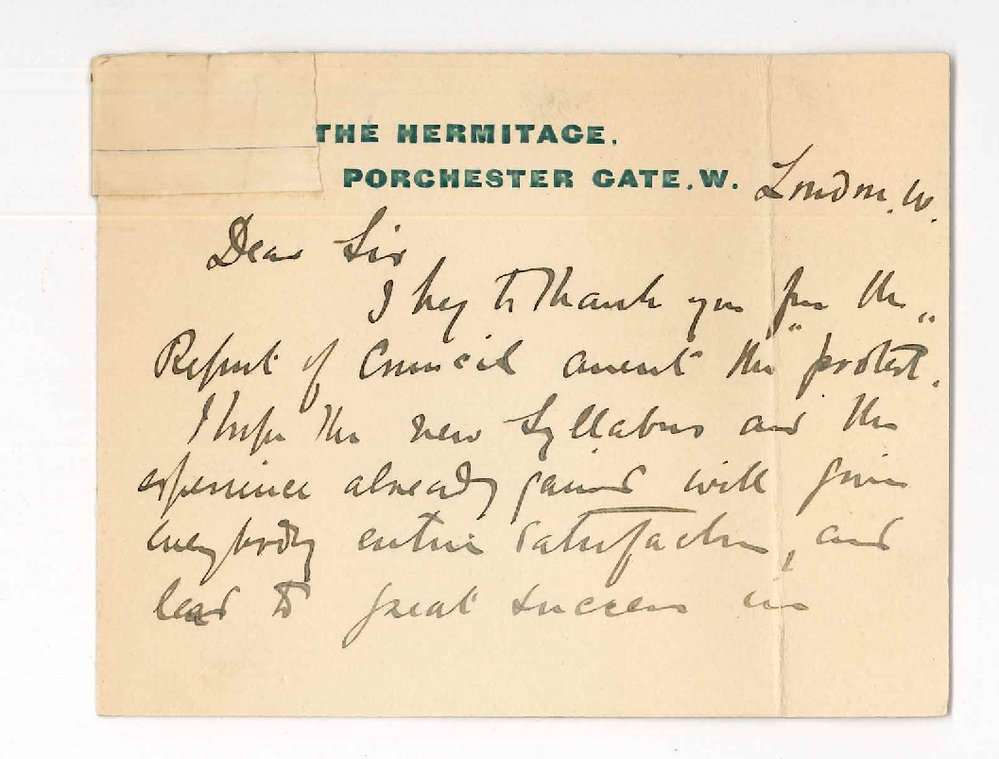 THE HERMITAGE,
PORCHESTER GATE, W.
London. W.
Dear Sir
I beg to thank you for the
Report of Council anent the "protest".
I hope the new Syllabus and the
experience already gained will give
everybody entire satisfaction, and
lead to great success in